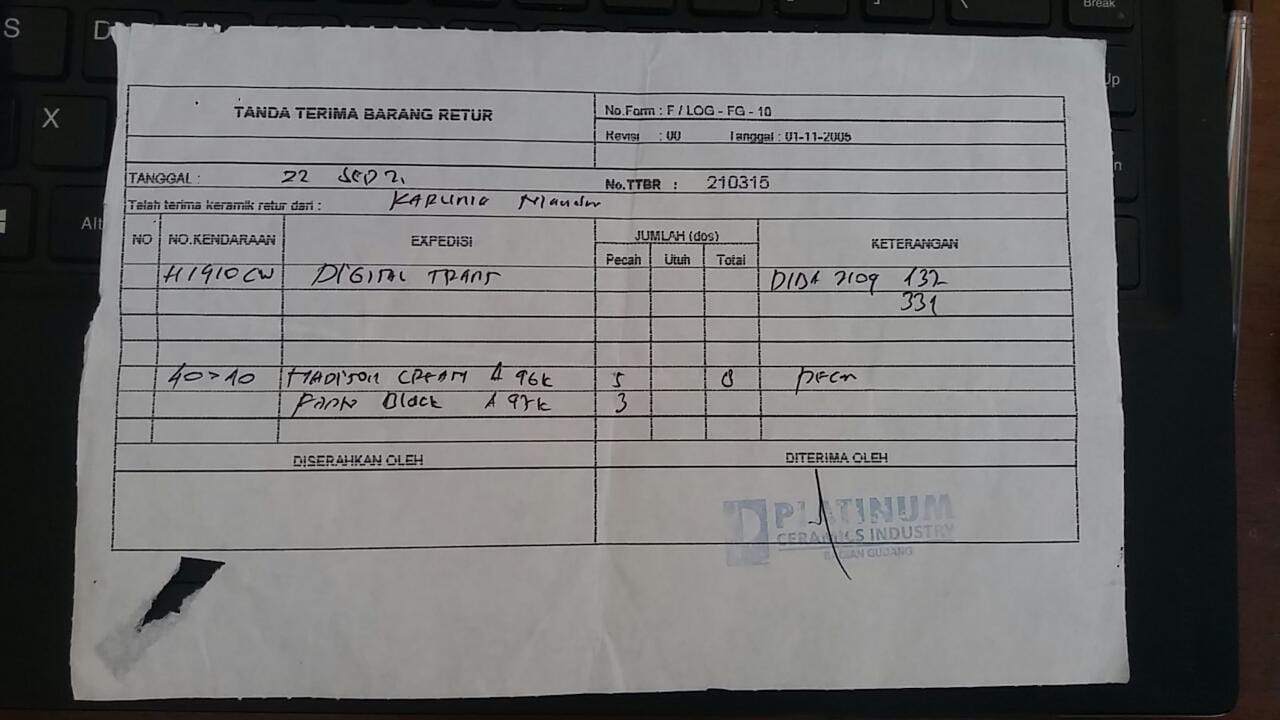 S D
X
Alt
Break
Up
TANDA TERIMA BARANG RETUR
No.Form : F / LOG - FG - 10
Revisi : 00 Tanggal : 01-11-2005
TANGGAL : 22 SEP 21
No.TTBR : 210315
Telah terima keramik retur dari : KARUNIA
NO NO.KENDARAAN EXPEDISI JUMLAH (dos) KETERANGAN
Pecah Utuh Total
H1910CW DIGITAL TRANS DIDA 2109 132
331
40 > 40 MADISON CREAM A 96K 5 8 PECH
Black A 97K 3
DISERAHKAN OLEH DITERIMA OLEH
PLATINUM
CERAMICS INDUSTRY
BAGIAN GUDANG